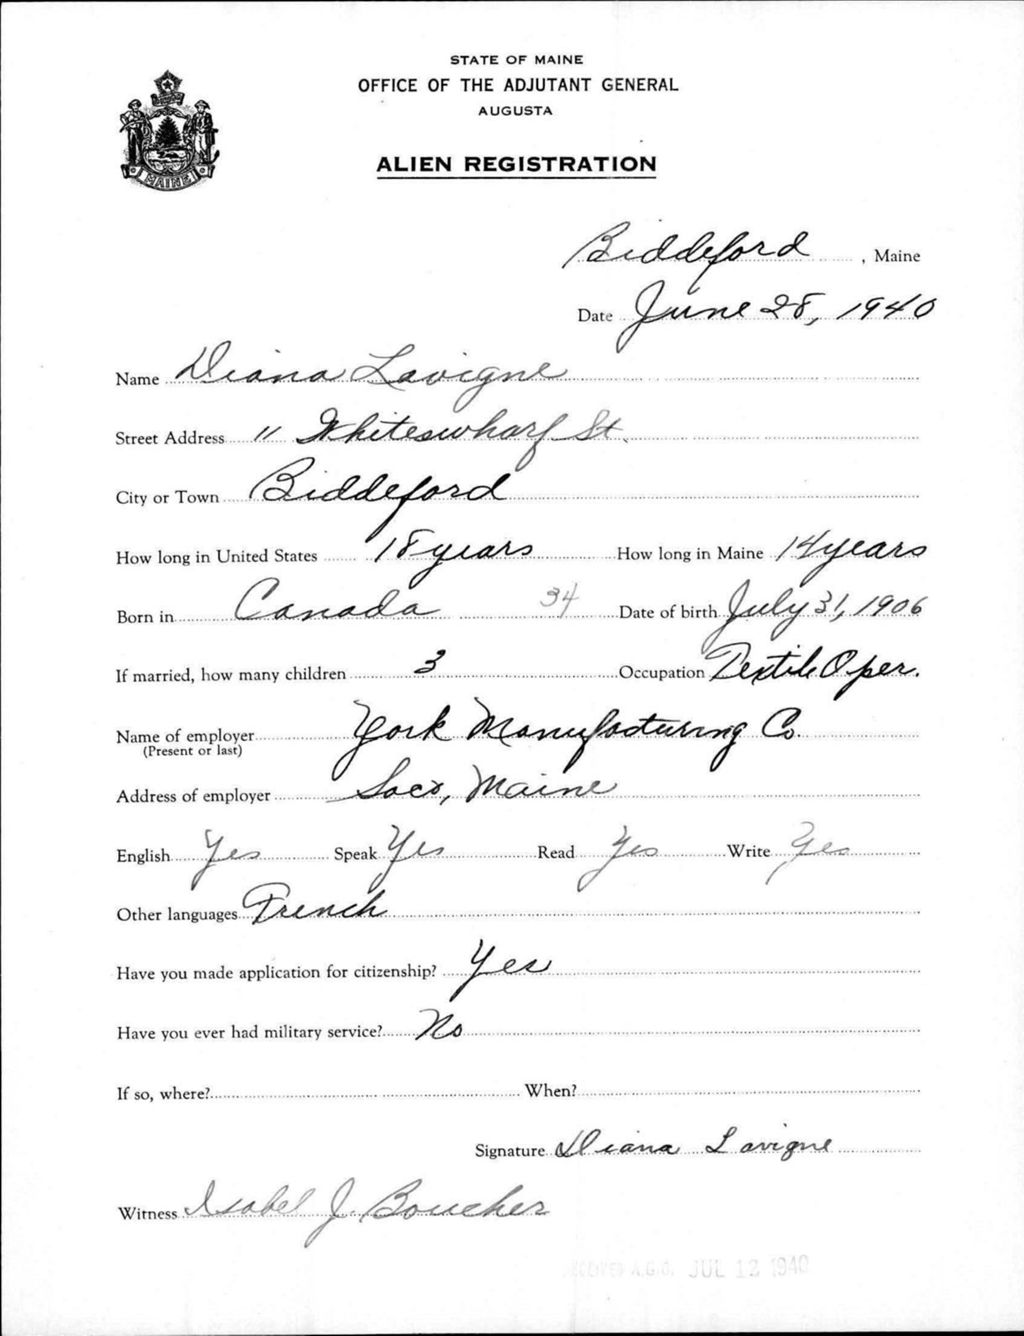 STATE OF MAINE
OFFICE OF THE ADJUTANT GENERAL
AUGUSTA
ALIEN REGISTRATION
MAINE
Biddeford, Maine
Date June 28, 1940
Name Diana Lavigne
Street Address 11 Whiteswharf St.
City or Town Biddeford
How long in United States 18 years How long in Maine 14 years
Born in Canada 34 Date of birth July 31, 1906
If married, how many children 3 Occupation Textile Oper.
Name of employer York Manufacturing Co.
(Present or last)
Address of employer Saco, Maine
English Yes Speak Yes Read Yes Write Yes
Other languages French
Have you made application for citizenship? Yes
Have you ever had military service? No
If so, where? When?
Signature Diana Lavigne
Witness Isabel J. Boucher
RECEIVED A.G.O. JUL 12 1940